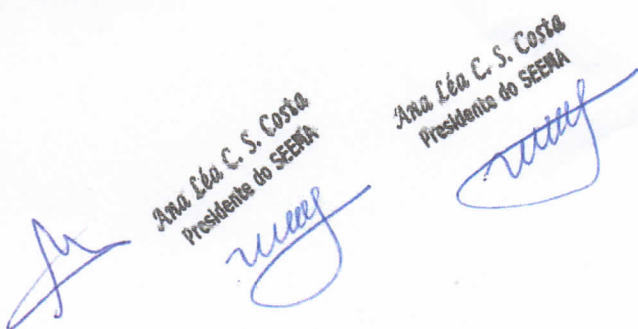 Ana Léa C. S. Costa
Presidente do SEEMA
Ana Léa C. S. Costa
Presidente do SEEMA